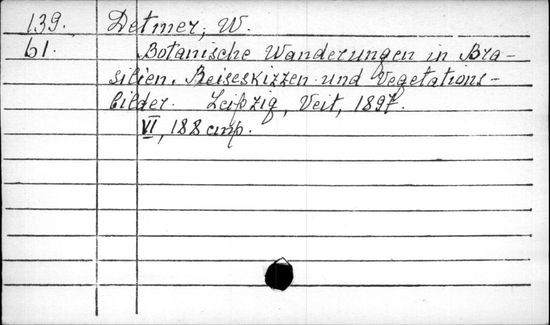 139. Detmer, W.
61. Botanische Wanderungen in Bra-
silien. Reiseskizzen und Vegetations-
bilder. Leipzig, Veit, 1897.
VI, 188 стр.